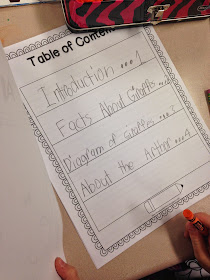 Table of Conten
Introduction ... 1
Facts About Giraffs ... 2
Diagram of Giraffes ... 3
About the Author ... 4